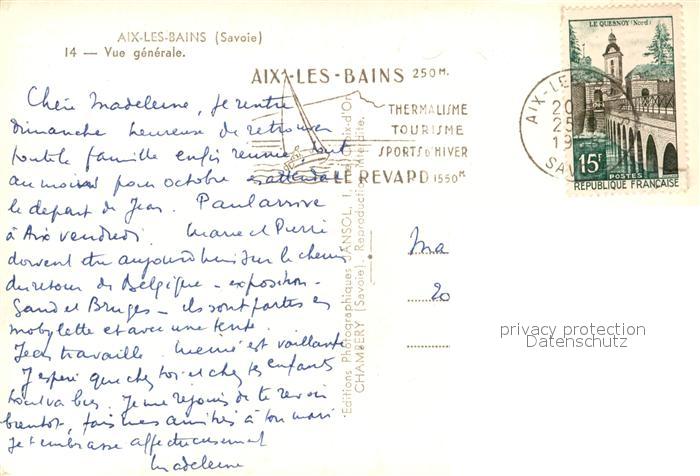 AIX-LES-BAINS (Savoie)
14 — Vue générale.
AIX-LES-BAINS 250 M.
THERMALISME
TOURISME
SPORTS D'HIVER
LE REVARD 1550 M
LE QUESNOY (Nord)
15F
POSTES
RÉPUBLIQUE FRANÇAISE
AIX-LE
20
25
19
SAV
Chère Madeleine, je rentre
dimanche heureuse de retrouver
toute la famille enfin réunie tout
au moins pour octobre
le départ de Jean. Paul arrive
à Aix vendredi. Marie et Pierre
doivent être aujourd'hui sur le chemin
du retour de Belgique - exposition -
Gand et Bruges - ils sont partis en
mobylette et avec une tente.
Jean travaille. Mémé est vaillante
J'espère que chez toi et chez tes enfants
tout va bien. Je me réjouis de te revoir
bientôt, fais mes amitiés à ton mari
Je t'embrasse affectueusement
Madeleine
Editions Photographiques JANSOL, 1,
CHAMBERY (Savoie). Reproduction interdite.
Ma
20
privacy protection
Datenschutz